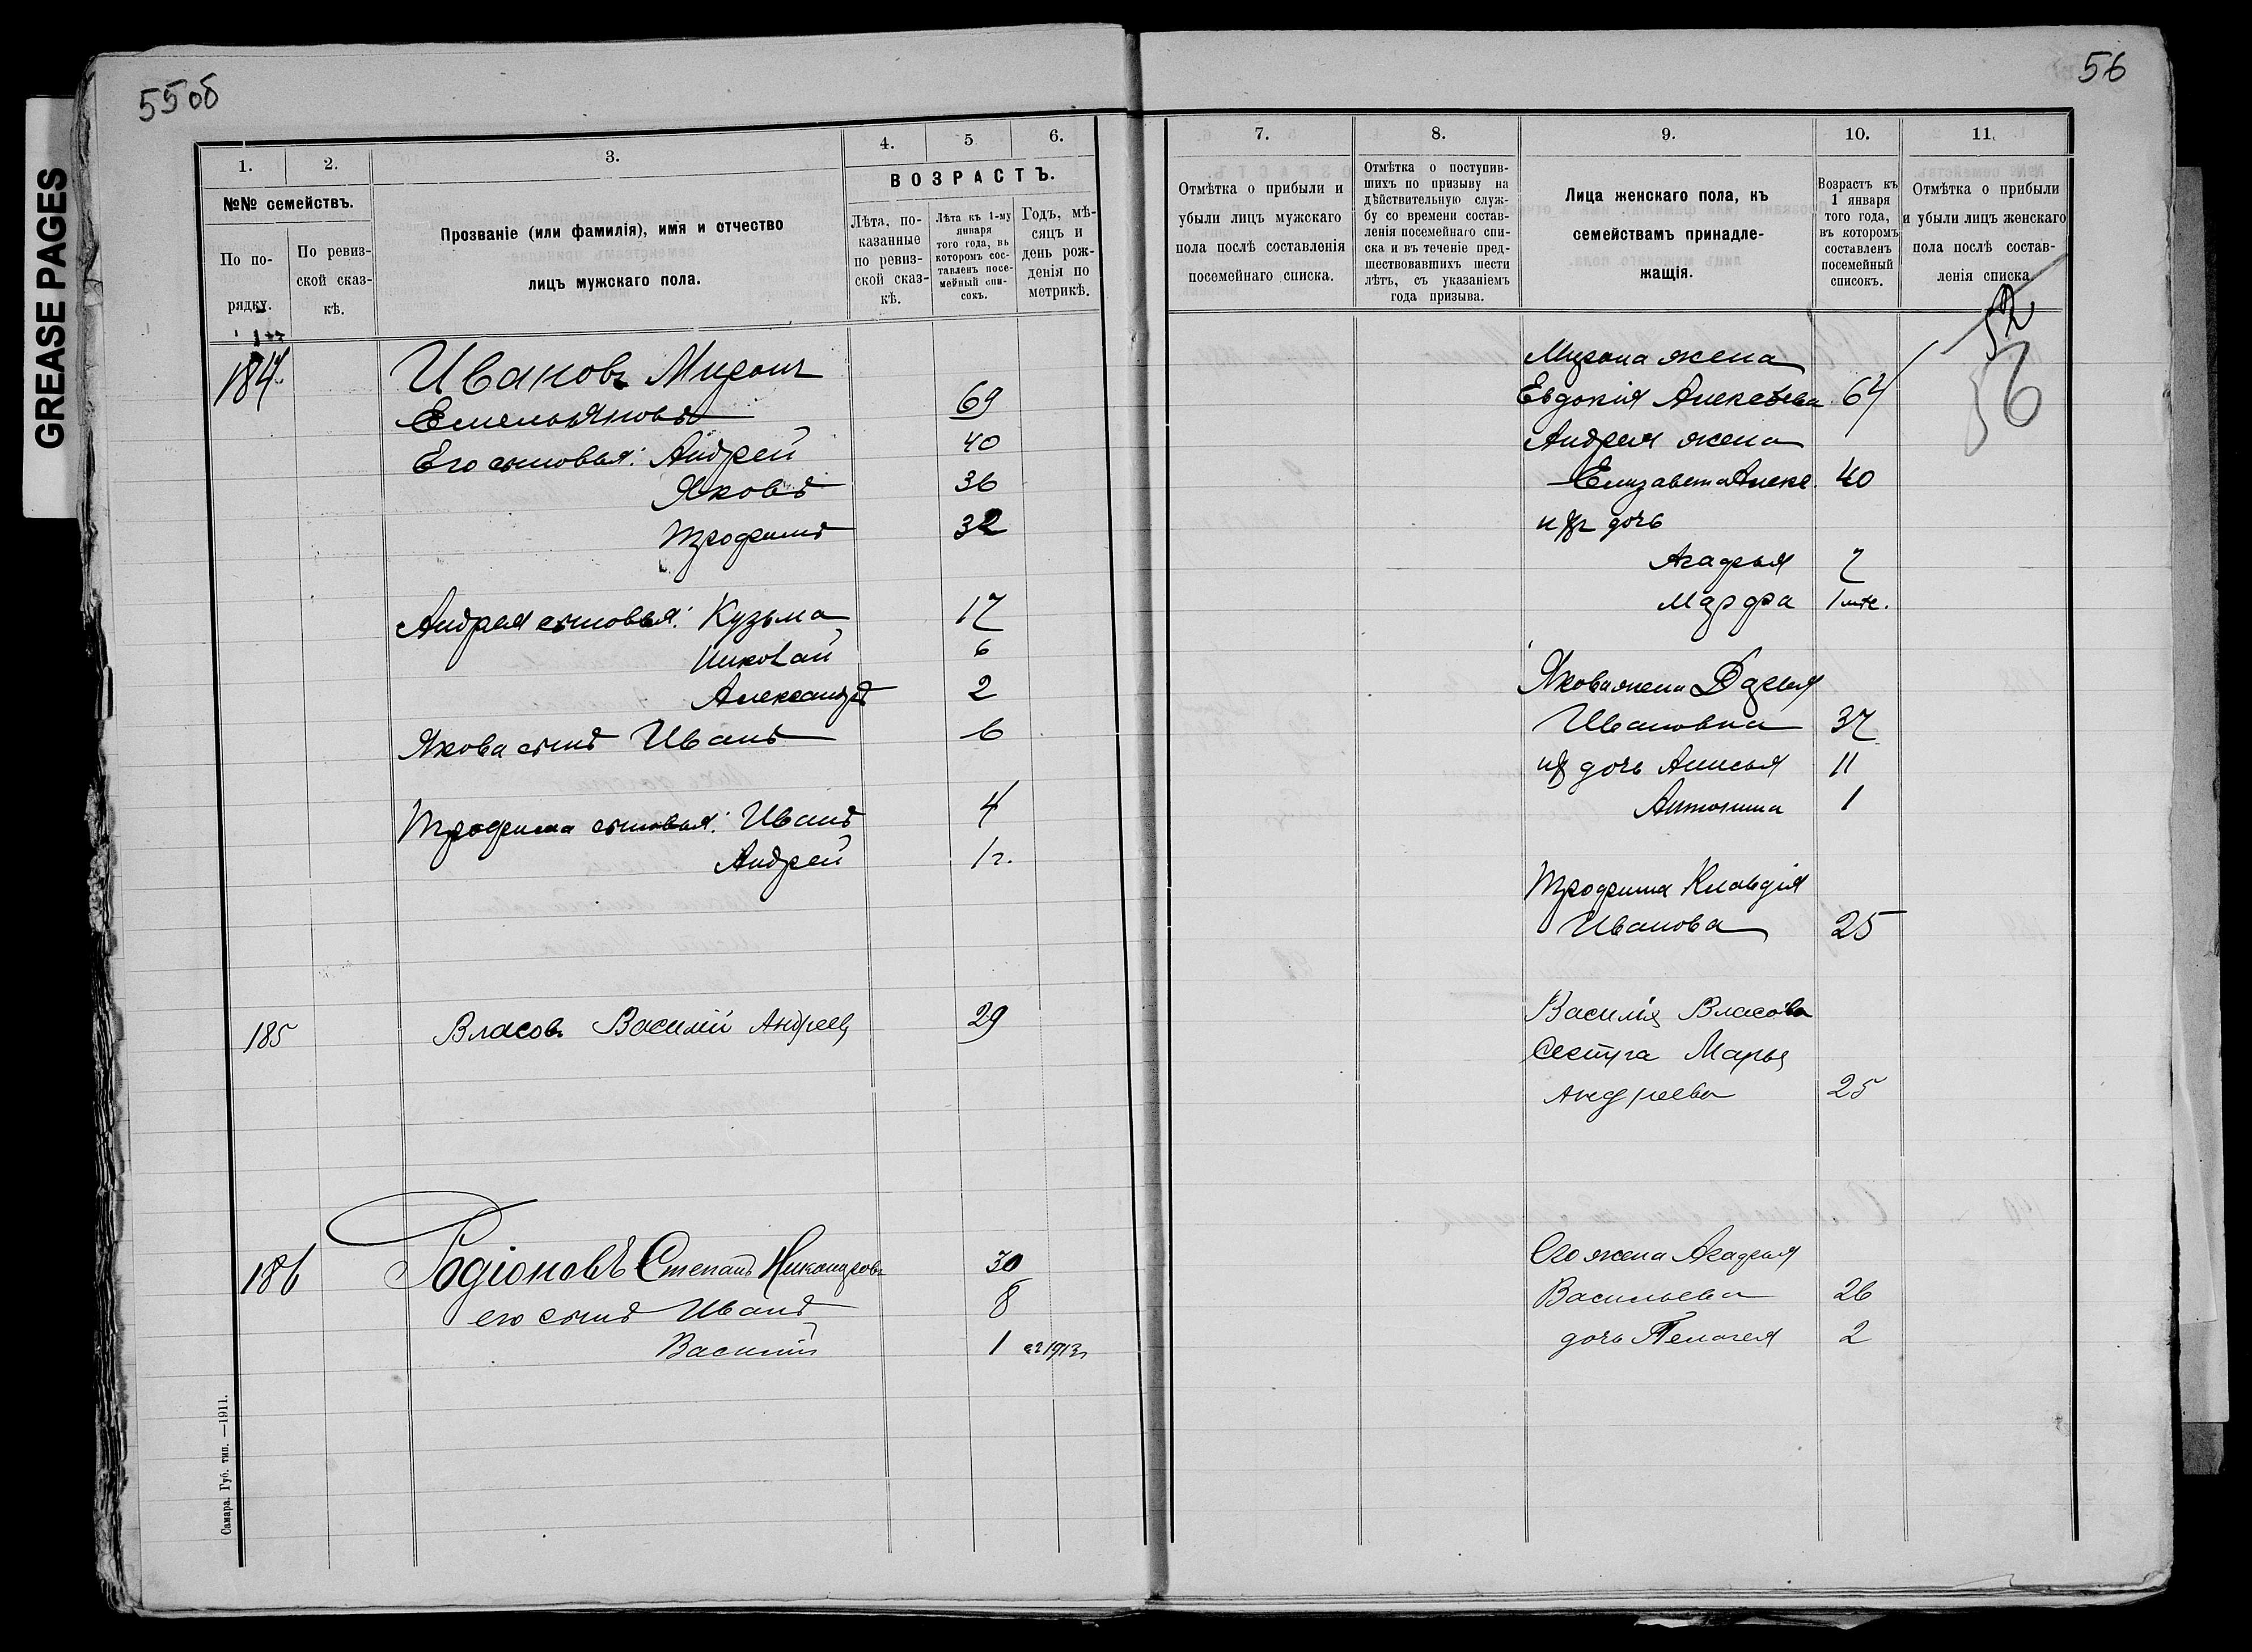 GREASE PAGES
55об
1.
2.
3.
4.
5
6.
№№ семействъ.
ВОЗРАСТЪ.
По по-
рядку.
По ревиз-
ской сказ-
кѣ.
Прозваніе (или фамилія), имя и отчество
лицъ мужскаго пола.
Лѣта, по-
казанные
по ревиз-
ской сказ-
кѣ.
Лѣта къ 1-му
января
того года, въ
которомъ сос-
тавленъ посе-
мейный спи-
сокъ.
Годъ, мѣ-
сяцъ и
день рож-
денія по
метрикѣ.
184 Ивановъ Миронъ
Емельяновъ 69
Его сыновья: Андрей 40
Яковъ 36
Трофимъ 32
Андрея сыновья: Кузьма 17
Николай 6
Александръ 2
Якова сынъ Иванъ 6
Трофима сыновья: Иванъ 4
Андрей 1 г.
185 Власовъ Василій Андреев 29
186 Родіоновъ Степанъ Никандровъ 30
его сынъ Иванъ 8
Василій 1 1913
Самара. Губ. тип. —1911.
56
7.
8.
9.
10.
11.
Отмѣтка о прибыли и
убыли лицъ мужскаго
пола послѣ составленія
посемейнаго списка.
Отмѣтка о поступив-
шихъ по призыву на
дѣйствительную служ-
бу со времени состав-
ленія посемейнаго спи-
ска и въ теченіе пред-
шествовавшихъ шести
лѣтъ, съ указаніемъ
года призыва.
Лица женскаго пола, къ
семействамъ принадле-
жащія.
Возрастъ къ
1 января
того года,
въ которомъ
составленъ
посемейный
списокъ.
Отмѣтка о прибыли
и убыли лицъ женскаго
пола послѣ состав-
ленія списка
52
56
Мирона жена
Евдокія Алексѣева 64
Андрея жена
Елизавета Алекс. 40
их дочь
Агафья 7
Марфа 1 мѣс.
Якова жена Дарья
Ивановна 37
их дочь Анисья 11
Антонина 1
Трофима Клавдія
Иванова 25
Василія Власова
Сестра Марья
Андреева 25
Его жена Агафья
Васильева 26
дочь Пелагея 2